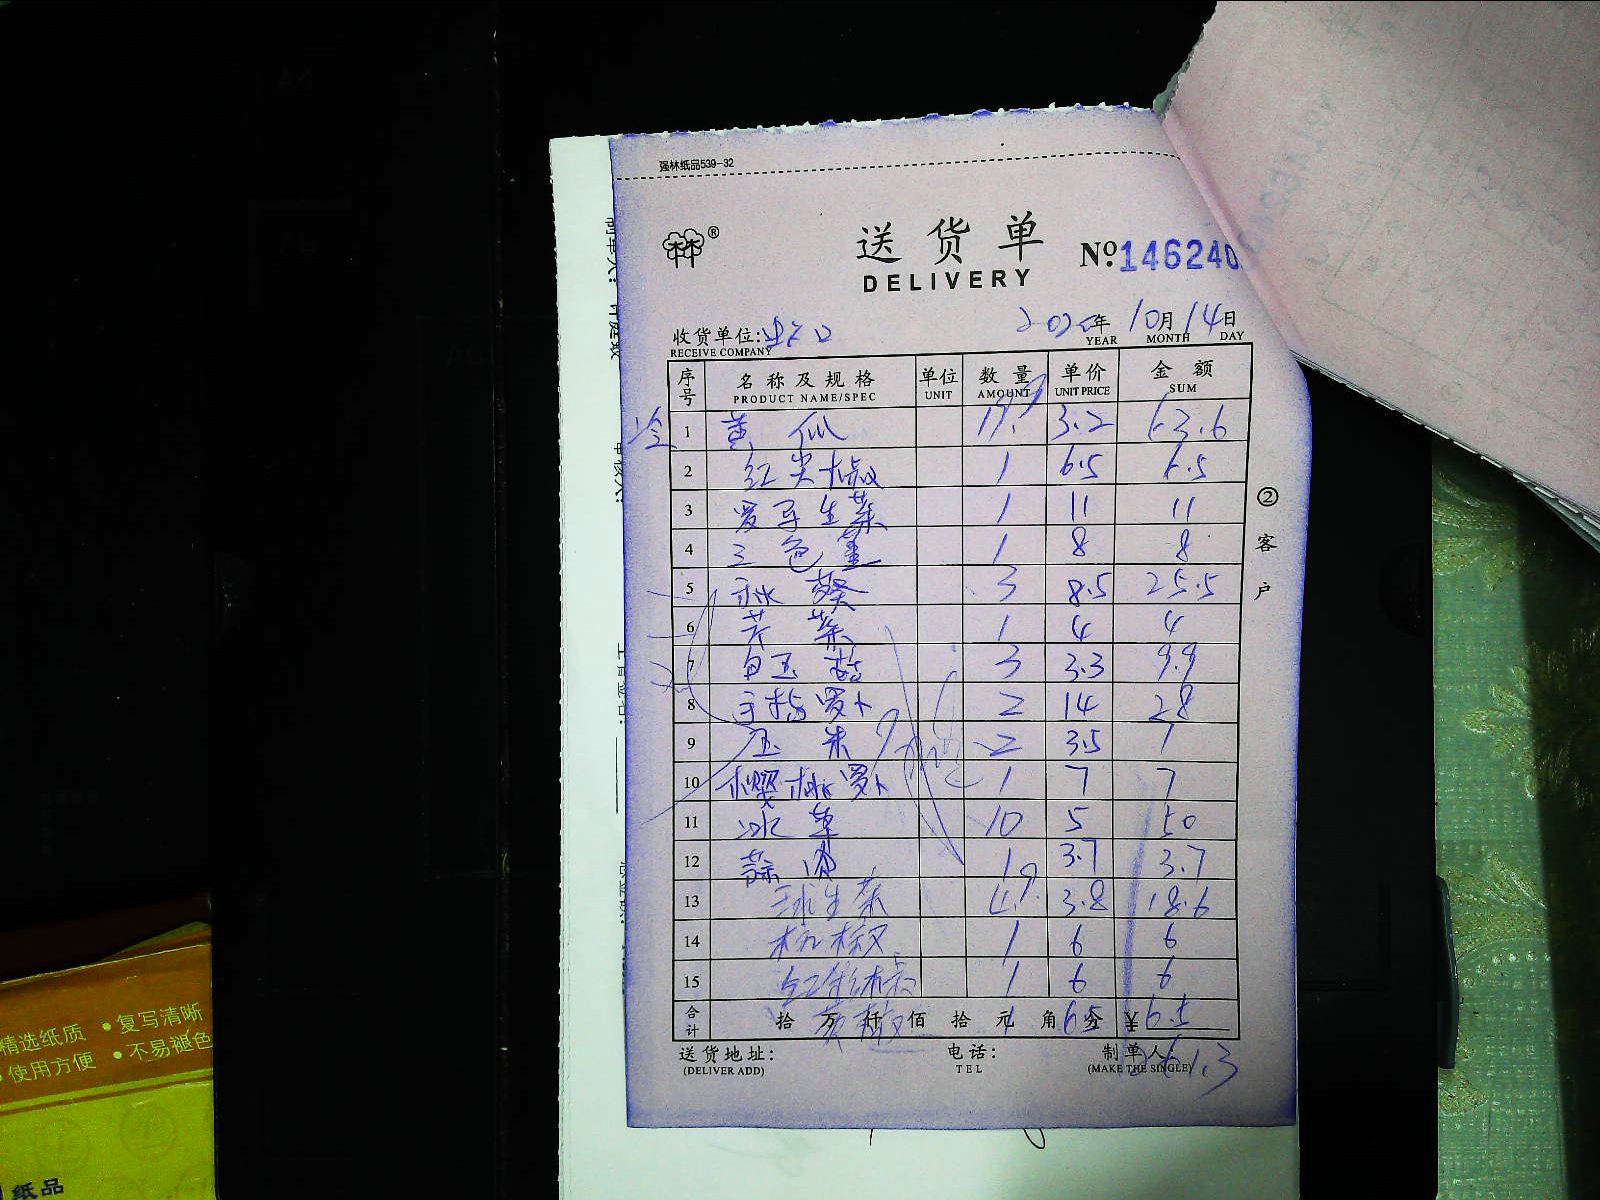 强林纸品539-32
送货单
DELIVERY
№:146240
收货单位:
RECEIVE COMPANY
年 10月14日
YEAR MONTH DAY
序号 名称及规格 单位 数量 单价 金额
PRODUCT NAME/SPEC UNIT AMOUNT UNIT PRICE SUM
1 黄瓜 3.2 63.6
2 红尖椒 1 6.5 6.5
3 罗马生菜 1 11 11
4 三色堇 1 8 8
5 秋葵 3 8.5 25.5
6 芹菜 1 4 4
7 白玉菇 3 3.3 9.9
8 手指萝卜 2 14 28
9 玉米 2 3.5 7
10 樱桃萝卜 1 7 7
11 冰草 10 5 50
12 蒜肉 1 3.7 3.7
13 球生菜 4.9 3.8 18.6
14 杭椒 1 6 6
15 红彩椒 1 6 6
合计 拾 万 仟 佰 拾 元 角 分 ¥
黄椒 1 6.5 6.5
送货地址: 电话: 制单人:
(DELIVER ADD) TEL (MAKE THE SINGLE)
261.3
②客户
精选纸质 •复写清晰
使用方便 •不易褪色
纸品